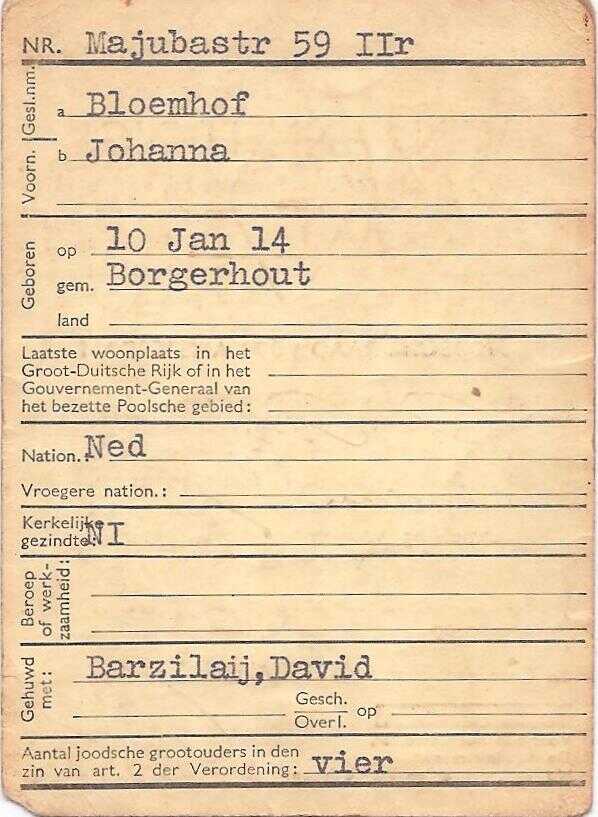 NR. Majubastr 59 IIr
Gesl.nm. a Bloemhof
Voorn. b Johanna
Geboren op 10 Jan 14
gem. Borgerhout
land
Laatste woonplaats in het
Groot-Duitsche Rijk of in het
Gouvernement-Generaal van
het bezette Poolsche gebied:
Nation.: Ned
Vroegere nation.:
Kerkelijke
gezindte: NI
Beroep
of werk-
zaamheid:
Gehuwd
met: Barzilaij, David
Gesch.
Overl. op
Aantal joodsche grootouders in den
zin van art. 2 der Verordening: vier